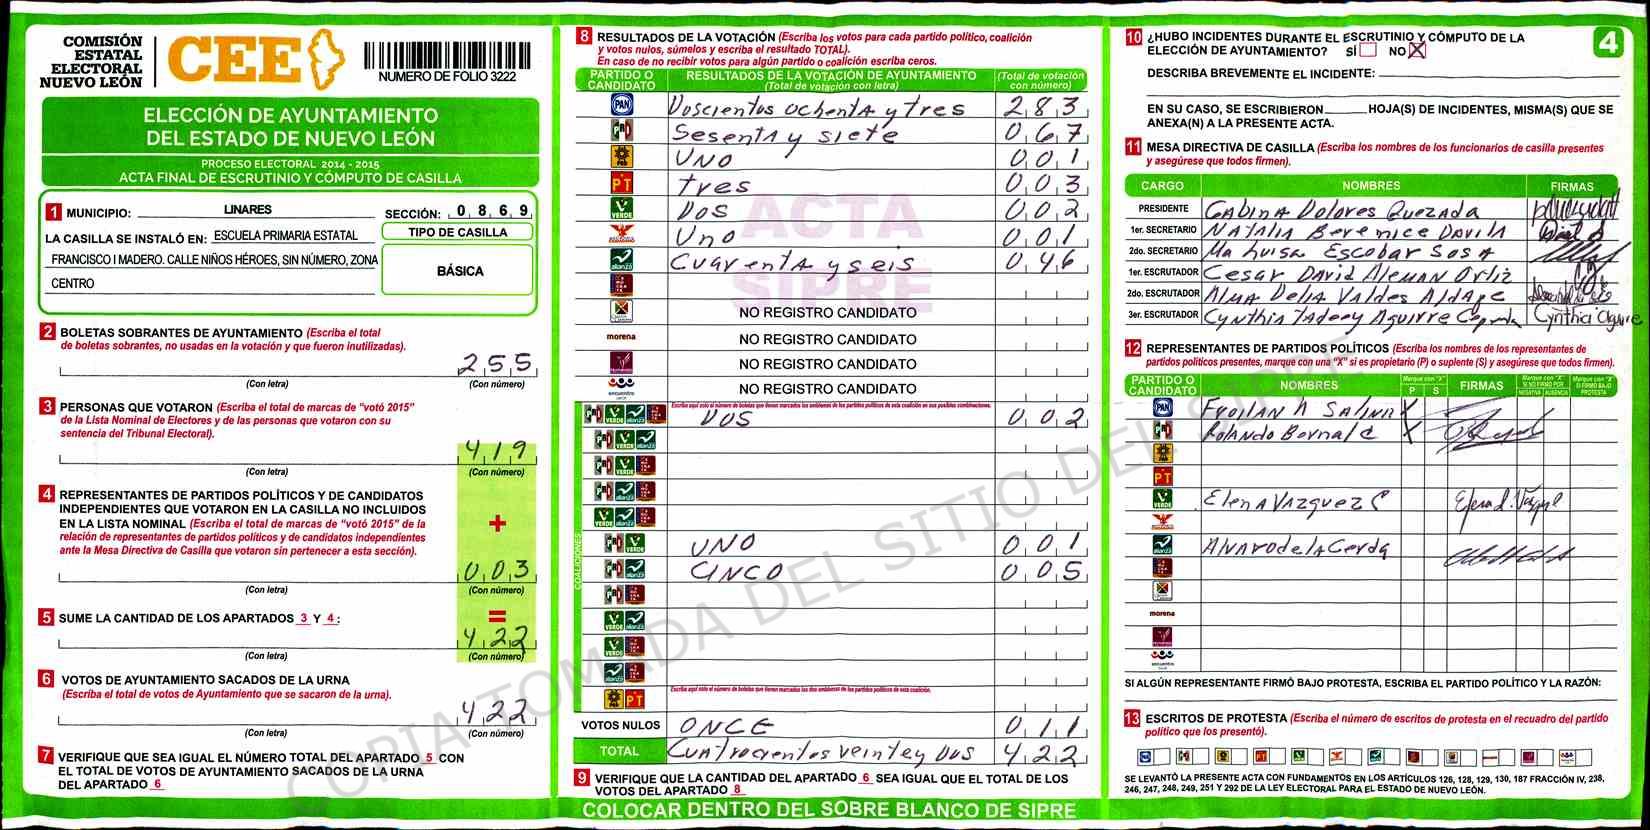 COMISIÓN
ESTATAL
ELECTORAL
NUEVO LEÓN
CEE
NUMERO DE FOLIO 3222
ELECCIÓN DE AYUNTAMIENTO
DEL ESTADO DE NUEVO LEÓN
PROCESO ELECTORAL 2014 - 2015
ACTA FINAL DE ESCRUTINIO Y CÓMPUTO DE CASILLA
1 MUNICIPIO: LINARES SECCIÓN: 0 8 6 9
LA CASILLA SE INSTALÓ EN: ESCUELA PRIMARIA ESTATAL
FRANCISCO I MADERO. CALLE NIÑOS HÉROES, SIN NÚMERO, ZONA
CENTRO
TIPO DE CASILLA
BÁSICA
2 BOLETAS SOBRANTES DE AYUNTAMIENTO (Escriba el total
de boletas sobrantes, no usadas en la votación y que fueron inutilizadas).
2 5 5
(Con letra) (Con número)
3 PERSONAS QUE VOTARON (Escriba el total de marcas de "votó 2015"
de la Lista Nominal de Electores y de las personas que votaron con su
sentencia del Tribunal Electoral).
4 1 9
(Con letra) (Con número)
4 REPRESENTANTES DE PARTIDOS POLÍTICOS Y DE CANDIDATOS
INDEPENDIENTES QUE VOTARON EN LA CASILLA NO INCLUIDOS
EN LA LISTA NOMINAL (Escriba el total de marcas de "votó 2015" de la
relación de representantes de partidos políticos y de candidatos independientes
ante la Mesa Directiva de Casilla que votaron sin pertenecer a esta sección).
+
0 0 3
(Con letra) (Con número)
5 SUME LA CANTIDAD DE LOS APARTADOS 3 Y 4:
=
4 2 2
(Con letra) (Con número)
6 VOTOS DE AYUNTAMIENTO SACADOS DE LA URNA
(Escriba el total de votos de Ayuntamiento que se sacaron de la urna).
4 2 2
(Con letra) (Con número)
7 VERIFIQUE QUE SEA IGUAL EL NÚMERO TOTAL DEL APARTADO 5 CON
EL TOTAL DE VOTOS DE AYUNTAMIENTO SACADOS DE LA URNA
DEL APARTADO 6
8 RESULTADOS DE LA VOTACIÓN (Escriba los votos para cada partido político, coalición
y votos nulos, súmelos y escriba el resultado TOTAL).
En caso de no recibir votos para algún partido o coalición escriba ceros.
PARTIDO O CANDIDATO RESULTADOS DE LA VOTACIÓN DE AYUNTAMIENTO (Total de votación con letra) (Total de votación con número)
PAN Doscientos ochenta y tres 2 8 3
PRD Sesenta y siete 0 6 7
UNO 0 0 1
PT tres 0 0 3
VERDE Dos 0 0 2
Uno 0 0 1
alianza Cuarenta y seis 0 4 6
NO REGISTRO CANDIDATO
morena NO REGISTRO CANDIDATO
NO REGISTRO CANDIDATO
encuentro NO REGISTRO CANDIDATO
COALICIONES
Escriba aquí solo el número de boletas que tienen marcados los emblemas de los partidos políticos de esta coalición en sus posibles combinaciones.
DOS 0 0 2
UNO 0 0 1
CINCO 0 0 5
Escriba aquí solo el número de boletas que tienen marcados los dos emblemas de los partidos políticos de esta coalición.
VOTOS NULOS ONCE 0 1 1
TOTAL Cuatrocientos veinte y Dos 4 2 2
9 VERIFIQUE QUE LA CANTIDAD DEL APARTADO 6 SEA IGUAL QUE EL TOTAL DE LOS
VOTOS DEL APARTADO 8
COLOCAR DENTRO DEL SOBRE BLANCO DE SIPRE
ACTA
SIPRE
COPIA TOMADA DEL SITIO DEL SIPRE
10 ¿HUBO INCIDENTES DURANTE EL ESCRUTINIO Y CÓMPUTO DE LA
ELECCIÓN DE AYUNTAMIENTO? SÍ NO X
4
DESCRIBA BREVEMENTE EL INCIDENTE:
EN SU CASO, SE ESCRIBIERON HOJA(S) DE INCIDENTES, MISMA(S) QUE SE
ANEXA(N) A LA PRESENTE ACTA.
11 MESA DIRECTIVA DE CASILLA (Escriba los nombres de los funcionarios de casilla presentes
y asegúrese que todos firmen).
CARGO NOMBRES FIRMAS
PRESIDENTE Gabina Dolores Quezada
1er. SECRETARIO Natalia Berenice Davila
2do. SECRETARIO Ma Luisa Escobar Sosa
1er. ESCRUTADOR Cesar David Aleman Ortiz
2do. ESCRUTADOR Alma Delia Valdes Aldape
3er. ESCRUTADOR Cynthia Tadeey Aguirre Cepeda Cynthia Aguirre
12 REPRESENTANTES DE PARTIDOS POLÍTICOS (Escriba los nombres de los representantes de
partidos políticos presentes, marque con una "X" si es propietario (P) o suplente (S) y asegúrese que todos firmen).
PARTIDO O CANDIDATO NOMBRES Marque con "X" P S FIRMAS Marque con "X" SI NO FIRMÓ POR NEGATIVA AUSENCIA Marque con "X" SI FIRMÓ BAJO PROTESTA
PAN Froilan A Salinas X
Rolando Bernal C X
PT
VERDE Elena Vazquez C Elena L. Vazquez
alianza Alvaro de la Cerda
morena
encuentro
SI ALGÚN REPRESENTANTE FIRMÓ BAJO PROTESTA, ESCRIBA EL PARTIDO POLÍTICO Y LA RAZÓN:
13 ESCRITOS DE PROTESTA (Escriba el número de escritos de protesta en el recuadro del partido
político que los presentó).
SE LEVANTÓ LA PRESENTE ACTA CON FUNDAMENTOS EN LOS ARTÍCULOS 126, 128, 129, 130, 187 FRACCIÓN IV, 238,
246, 247, 248, 249, 251 Y 292 DE LA LEY ELECTORAL PARA EL ESTADO DE NUEVO LEÓN.